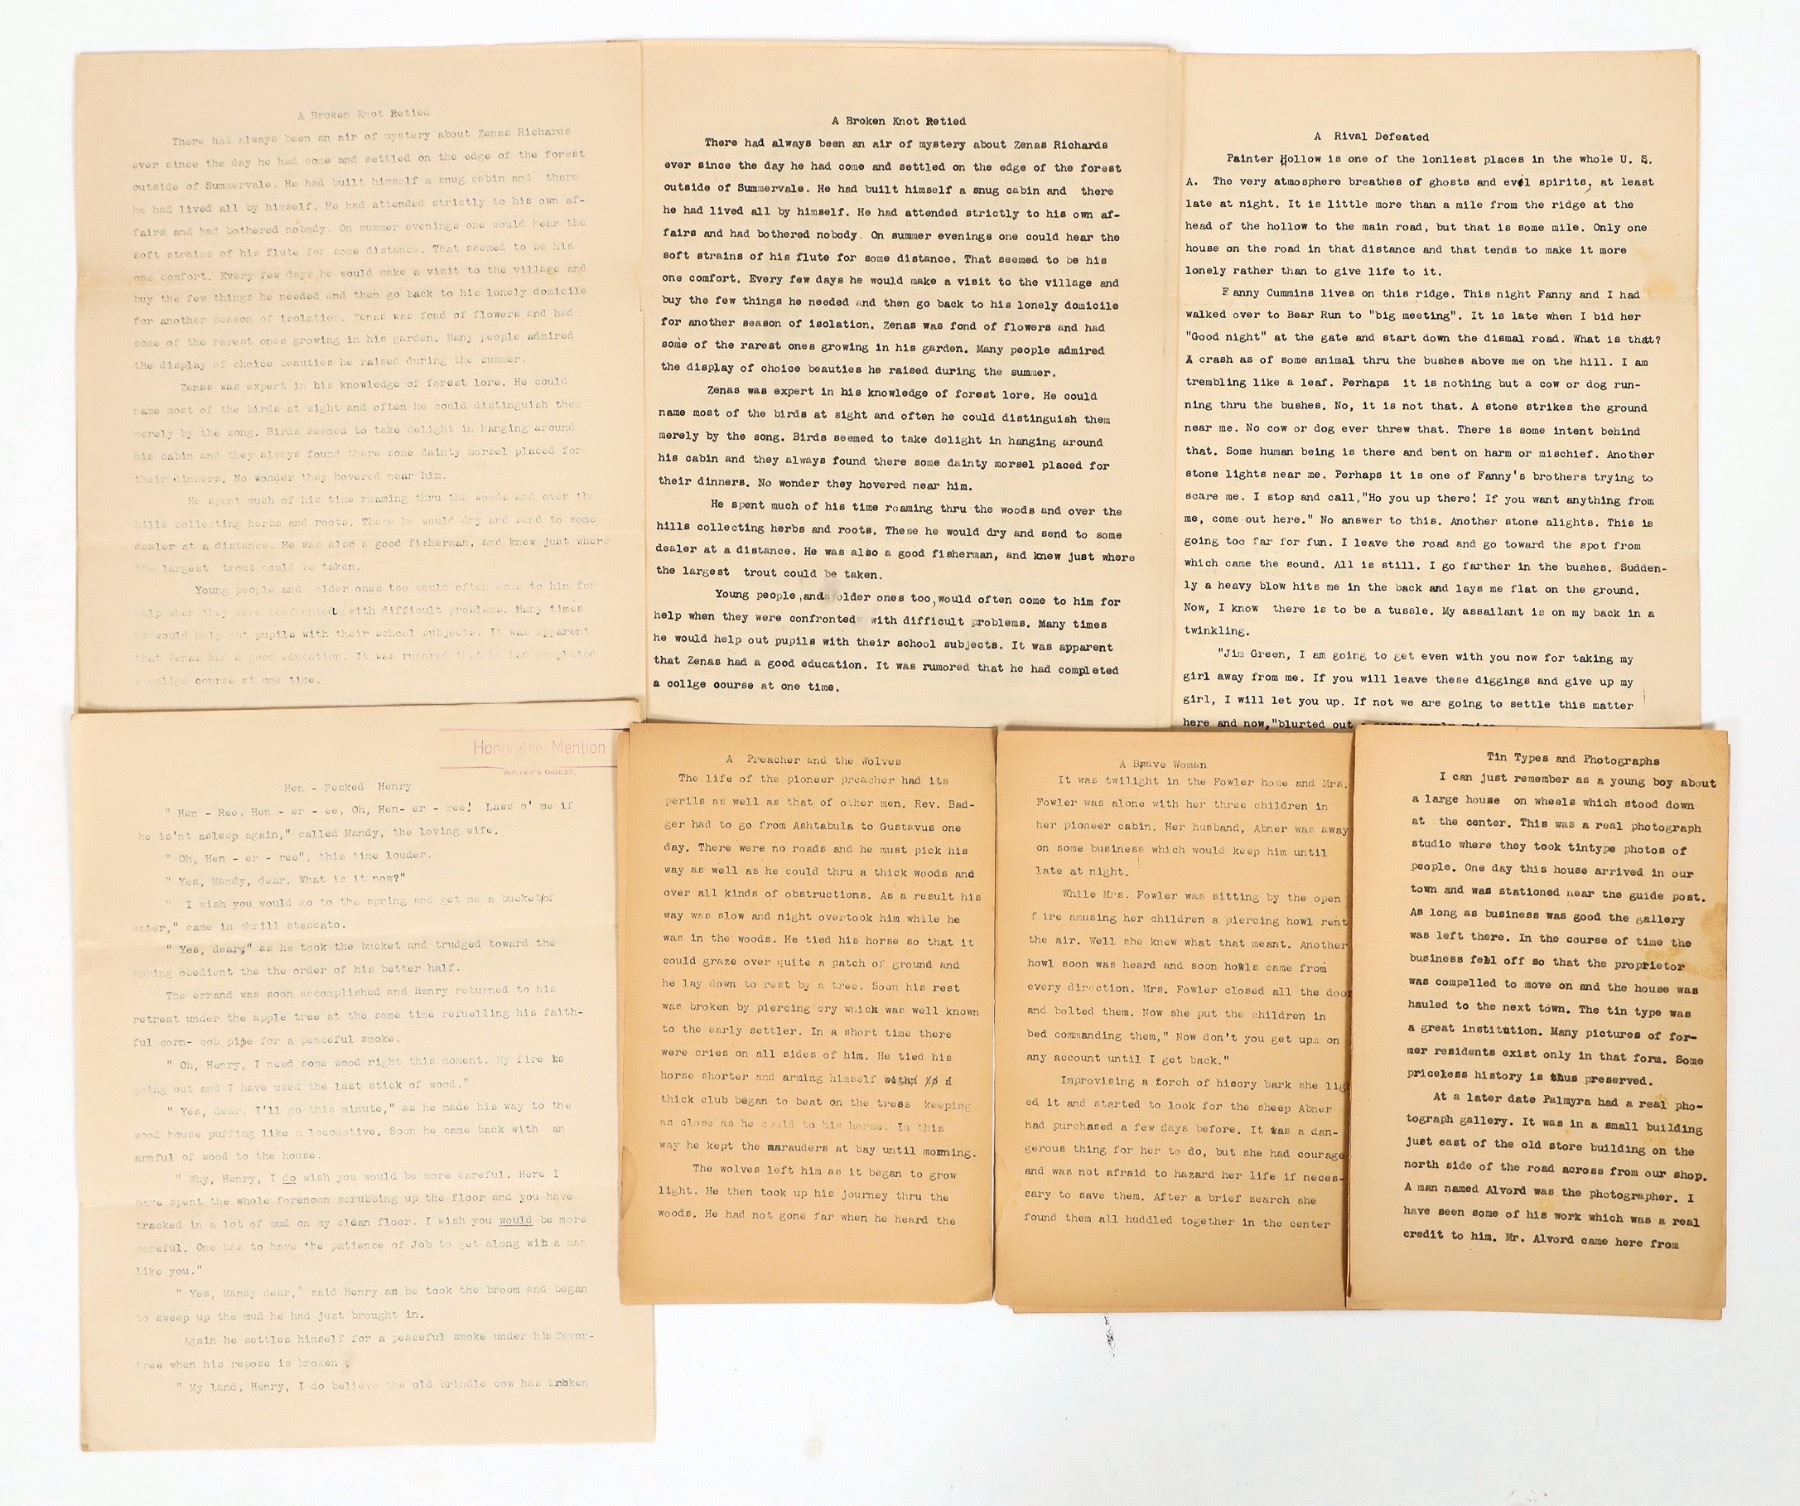 A Broken Knot Retied
There had always been an air of mystery about Zenas Richards
ever since the day he had come and settled on the edge of the forest
outside of Summervale. He had built himself a snug cabin and there
he had lived all by himself. He had attended strictly to his own af-
fairs and had bothered nobody. On summer evenings one could hear the
soft strains of his flute for some distance. That seemed to be his
one comfort. Every few days he would make a visit to the village and
buy the few things he needed and then go back to his lonely domicile
for another season of isolation. Zenas was fond of flowers and had
some of the rarest ones growing in his garden. Many people admired
the display of choice beauties he raised during the summer.
Zenas was expert in his knowledge of forest lore. He could
name most of the birds at sight and often he could distinguish them
merely by the song. Birds seemed to take delight in hanging around
his cabin and they always found there some dainty morsel placed for
their dinners. No wonder they hovered near him.
He spent much of his time roaming thru the woods and over the
hills collecting herbs and roots. These he would dry and send to some
dealer at a distance. He was also a good fisherman, and knew just where
the largest trout could be taken.
Young people and older ones too would often come to him for
help when they were confronted with difficult problems. Many times
he would help out pupils with their school subjects. It was apparent
that Zenas had a good education. It was rumored that he had completed
a collge course at one time.
A Broken Knot Retied
There had always been an air of mystery about Zenas Richards
ever since the day he had come and settled on the edge of the forest
outside of Summervale. He had built himself a snug cabin and there
he had lived all by himself. He had attended strictly to his own af-
fairs and had bothered nobody. On summer evenings one could hear the
soft strains of his flute for some distance. That seemed to be his
one comfort. Every few days he would make a visit to the village and
buy the few things he needed and then go back to his lonely domicile
for another season of isolation. Zenas was fond of flowers and had
some of the rarest ones growing in his garden. Many people admired
the display of choice beauties he raised during the summer.
Zenas was expert in his knowledge of forest lore. He could
name most of the birds at sight and often he could distinguish them
merely by the song. Birds seemed to take delight in hanging around
his cabin and they always found there some dainty morsel placed for
their dinners. No wonder they hovered near him.
He spent much of his time roaming thru the woods and over the
hills collecting herbs and roots. These he would dry and send to some
dealer at a distance. He was also a good fisherman, and knew just where
the largest trout could be taken.
Young people, and older ones too, would often come to him for
help when they were confronted with difficult problems. Many times
he would help out pupils with their school subjects. It was apparent
that Zenas had a good education. It was rumored that he had completed
a collge course at one time.
A Rival Defeated
Painter Hollow is one of the lonliest places in the whole U. S.
A. The very atmosphere breathes of ghosts and evil spirits, at least
late at night. It is little more than a mile from the ridge at the
head of the hollow to the main road, but that is some mile. Only one
house on the road in that distance and that tends to make it more
lonely rather than to give life to it.
Fanny Cummins lives on this ridge. This night Fanny and I had
walked over to Bear Run to "big meeting". It is late when I bid her
"Good night" at the gate and start down the dismal road. What is that?
A crash as of some animal thru the bushes above me on the hill. I am
trembling like a leaf. Perhaps it is nothing but a cow or dog run-
ning thru the bushes. No, it is not that. A stone strikes the ground
near me. No cow or dog ever threw that. There is some intent behind
that. Some human being is there and bent on harm or mischief. Another
stone lights near me. Perhaps it is one of Fanny's brothers trying to
scare me. I stop and call,"Ho you up there! If you want anything from
me, come out here." No answer to this. Another stone alights. This is
going too far for fun. I leave the road and go toward the spot from
which came the sound. All is still. I go farther in the bushes. Sudden-
ly a heavy blow hits me in the back and lays me flat on the ground.
Now, I know there is to be a tussle. My assailant is on my back in a
twinkling.
"Jim Green, I am going to get even with you now for taking my
girl away from me. If you will leave these diggings and give up my
girl, I will let you up. If not we are going to settle this matter
here and now,"blurted out
Honorable Mention
WRITER'S DIGEST.
Hen - Pecked Henry
" Hen - Ree, Hen - er - ee, Oh, Hen- er - ree! Laws o' me if
he is'nt asleep again," called Mandy, the loving wife.
" Oh, Hen - er - ree", this time louder.
" Yes, Mandy, dear. What is it now?"
" I wish you would go to the spring and get me a bucket of
water," came in shrill staccato.
" Yes, dear," as he took the bucket and trudged toward the
spring obedient the the order of his better half.
The errand was soon accomplished and Henry returned to his
retreat under the apple tree at the same time refuelling his faith-
ful corn- cob pipe for a peaceful smoke.
" Oh, Henry, I need some wood right this moment. My fire is
going out and I have used the last stick of wood."
" Yes, dear. I'll go this minute," as he made his way to the
wood house puffing like a locomotive. Soon he came back with an
armful of wood to the house.
" Why, Henry, I do wish you would be more careful. Here I
have spent the whole forenoon scrubbing up the floor and you have
tracked in a lot of mud on my clean floor. I wish you would be more
careful. One has to have the patience of Job to get along wih a man
like you."
" Yes, Mandy dear," said Henry as he took the broom and began
to sweep up the mud he had just brought in.
Again he settles himself for a peaceful smoke under his favor-
tree when his repose is broken.
" My land, Henry, I do believe the old brindle cow has broken
A Preacher and the Wolves
The life of the pioneer preacher had its
perils as well as that of other men. Rev. Bad-
ger had to go from Ashtabula to Gustavus one
day. There were no roads and he must pick his
way as well as he could thru a thick woods and
over all kinds of obstructions. As a result his
way was slow and night overtook him while he
was in the woods. He tied his horse so that it
could graze over quite a patch of ground and
he lay down to rest by a tree. Soon his rest
was broken by piercing cry which was well known
to the early settler. In a short time there
were cries on all sides of him. He tied his
horse shorter and arming himself with a
thick club began to beat on the trees keeping
as close as he could to his horse. In this
way he kept the marauders at bay until morning.
The wolves left him as it began to grow
light. He then took up his journey thru the
woods. He had not gone far when he heard the
A Brave Woman
It was twilight in the Fowler home and Mrs.
Fowler was alone with her three children in
her pioneer cabin. Her husband, Abner was away
on some business which would keep him until
late at night.
While Mrs. Fowler was sitting by the open
fire amusing her children a piercing howl rent
the air. Well she knew what that meant. Another
howl soon was heard and soon howls came from
every direction. Mrs. Fowler closed all the doo
and bolted them. Now she put the children in
bed commanding them," Now don't you get up on
any account until I get back."
Improvising a torch of hicory bark she lig
ed it and started to look for the sheep Abner
had purchased a few days before. It was a dan-
gerous thing for her to do, but she had courage
and was not afraid to hazard her life if neces-
sary to save them. After a brief search she
found them all huddled together in the center
Tin Types and Photographs
I can just remember as a young boy about
a large house on wheels which stood down
at the center. This was a real photograph
studio where they took tintype photos of
people. One day this house arrived in our
town and was stationed near the guide post.
As long as business was good the gallery
was left there. In the course of time the
business fell off so that the proprietor
was compelled to move on and the house was
hauled to the next town. The tin type was
a great institution. Many pictures of for-
mer residents exist only in that form. Some
priceless history is thus preserved.
At a later date Palmyra had a real pho-
tograph gallery. It was in a small building
just east of the old store building on the
north side of the road across from our shop.
A man named Alvord was the photographer. I
have seen some of his work which was a real
credit to him. Mr. Alvord came here from